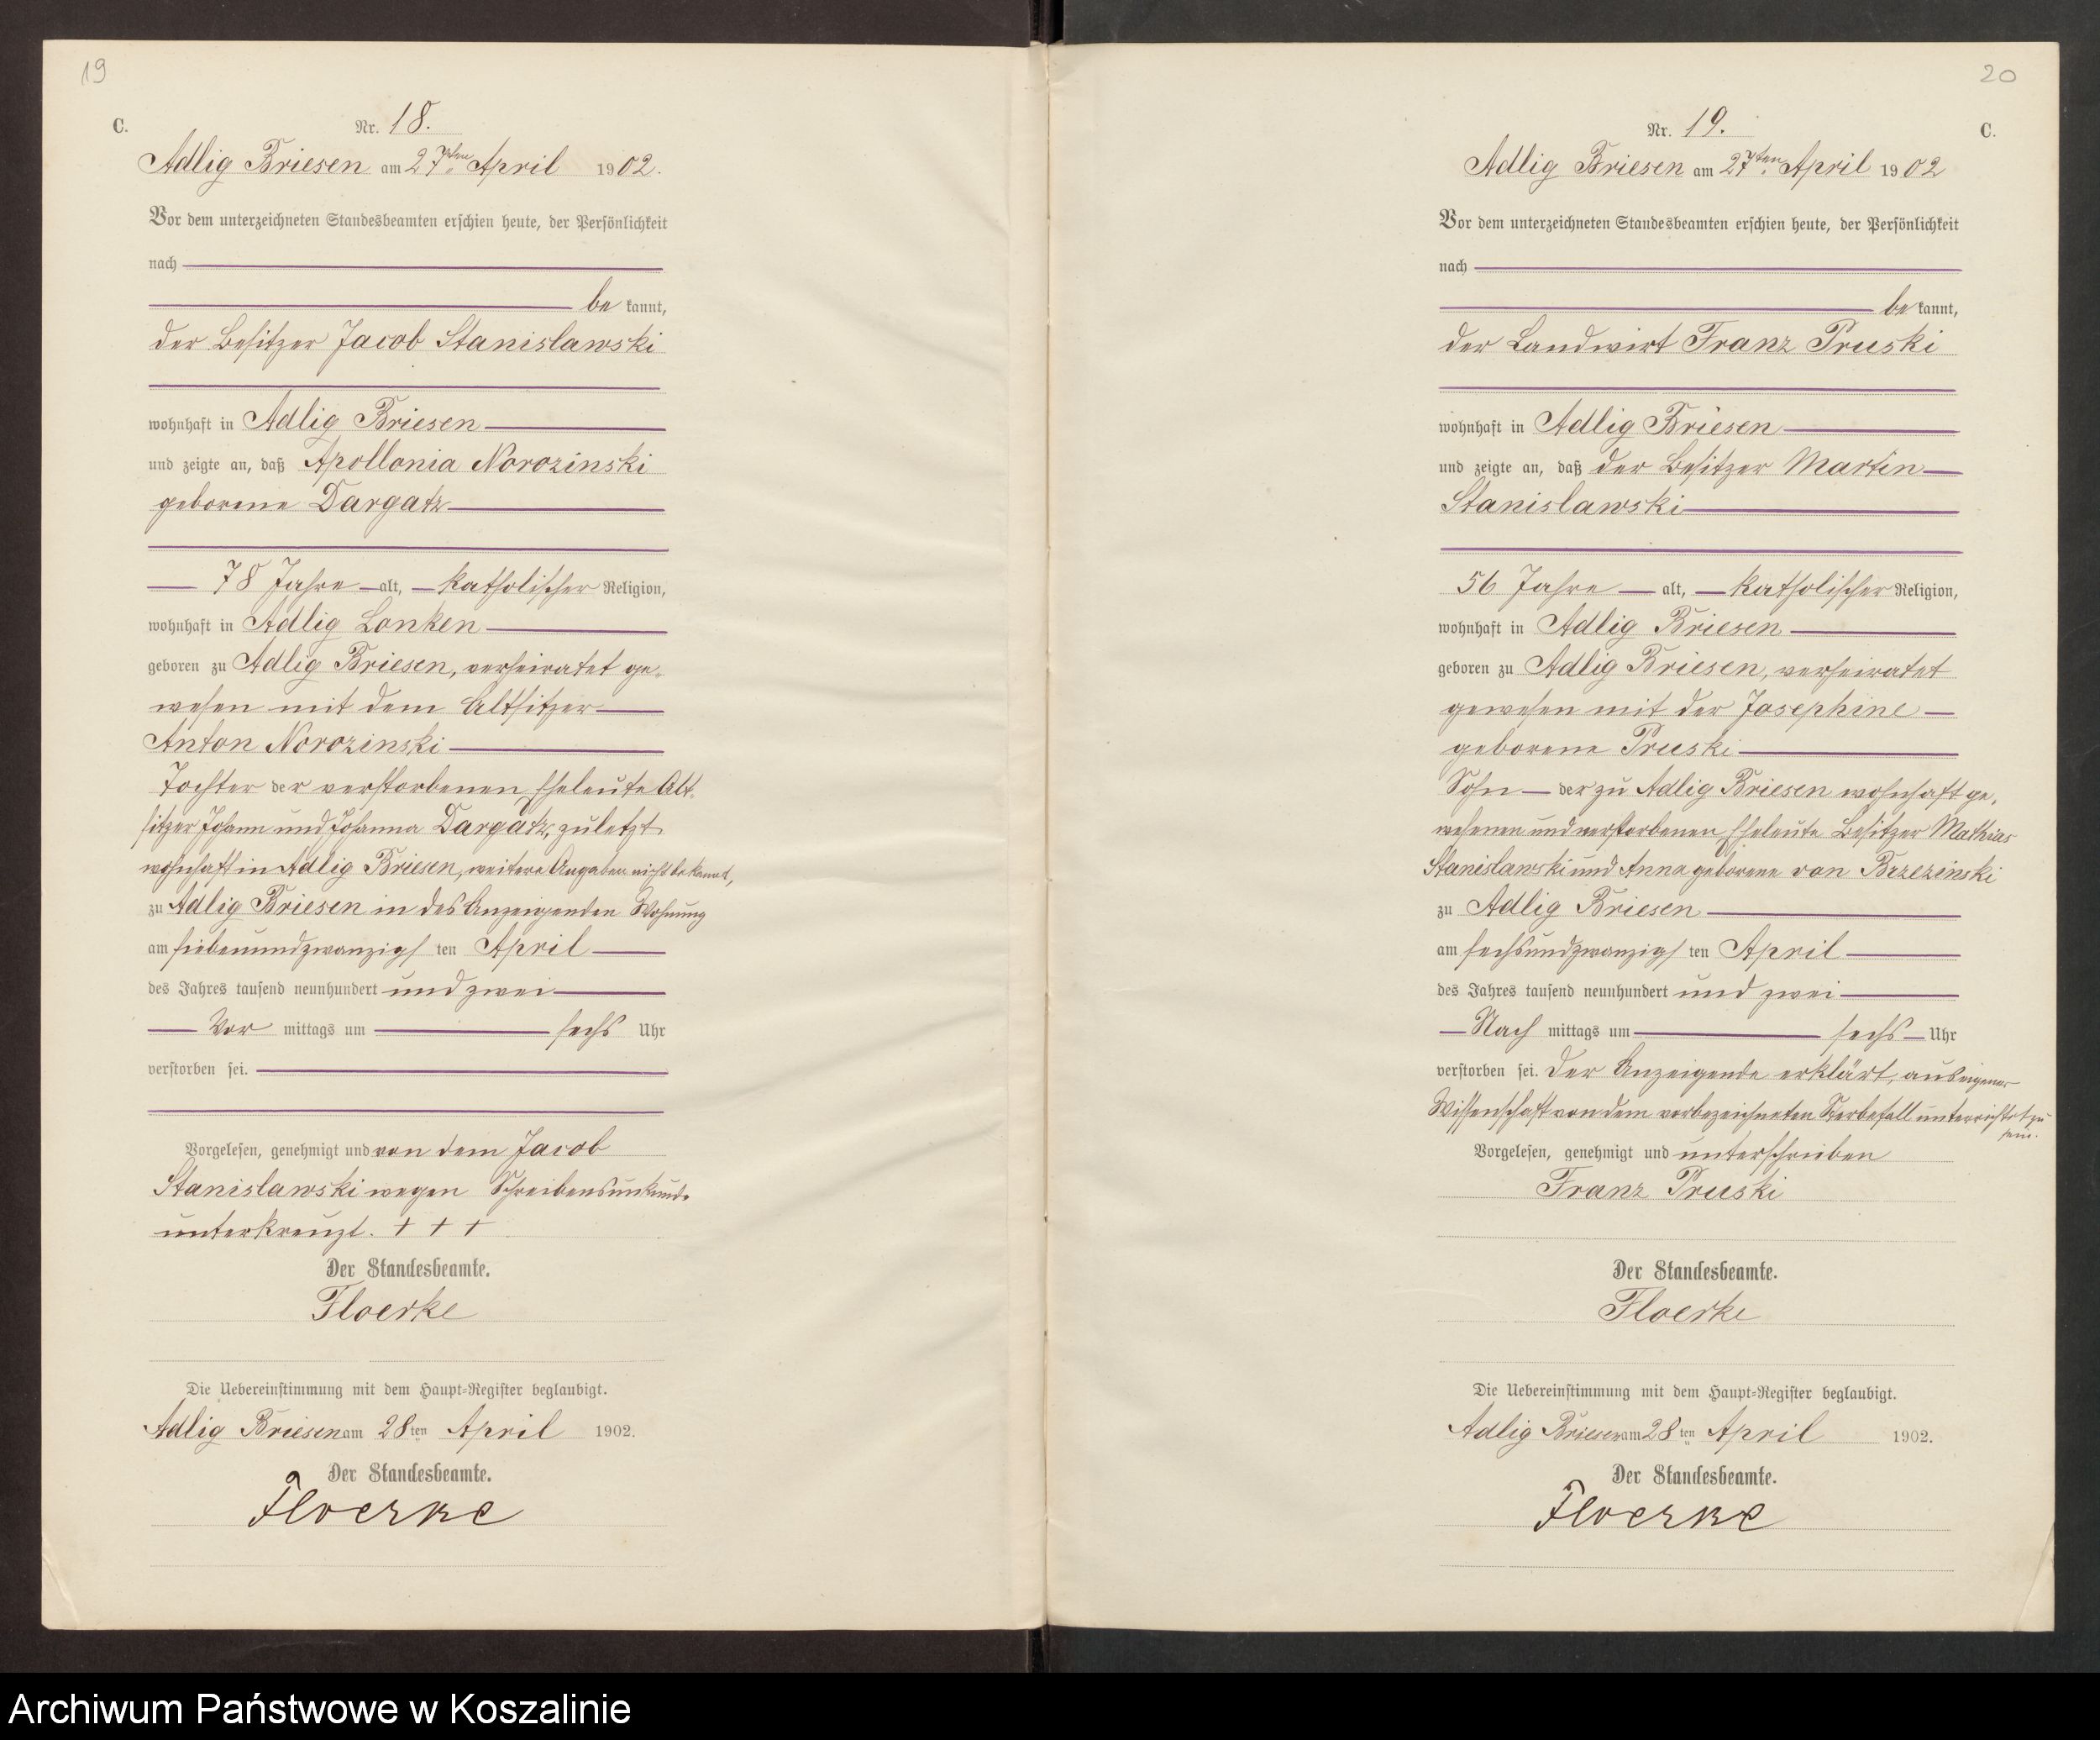 19
C.
Nr. 18.
Adlig Briesen am 27ten April 1902.
Vor dem unterzeichneten Standesbeamten erschien heute, der Persönlichkeit
nach
be kannt,
der Besitzer Jacob Stanislawski
wohnhaft in Adlig Briesen
und zeigte an, daß Apollonia Norozinski
geborene Dargatz
78 Jahre alt, katholischer Religion,
wohnhaft in Adlig Lonken
geboren zu Adlig Briesen, verheiratet ge-
wesen mit dem Altsitzer
Anton Norozinski
Tochter der verstorbenen Eheleute Alt-
sitzer Johann und Johanna Dargatz, zuletzt
wohnhaft in Adlig Briesen, weitere Angaben nicht bekannt,
zu Adlig Briesen in des Anzeigenden Wohnung
am siebenundzwanzigs ten April
des Jahres tausend neunhundert und zwei
Vor mittags um sechs Uhr
verstorben sei.
Vorgelesen, genehmigt und von dem Jacob
Stanislawski wegen Schreibensunkunde
unterkreuzt. + + +
Der Standesbeamte.
Floerke
Die Uebereinstimmung mit dem Haupt-Register beglaubigt.
Adlig Briesen am 28ten April 1902.
Der Standesbeamte.
Floerke
20
C.
Nr. 19.
Adlig Briesen am 27ten April 1902
Vor dem unterzeichneten Standesbeamten erschien heute, der Persönlichkeit
nach
be kannt,
der Landwirt Franz Pruski
wohnhaft in Adlig Briesen
und zeigte an, daß der Besitzer Martin
Stanislawski
56 Jahre alt, katholischer Religion,
wohnhaft in Adlig Briesen
geboren zu Adlig Briesen, verheiratet
gewesen mit der Josephine
geborene Pruski
Sohn der zu Adlig Briesen wohnhaft ge-
wesenen und verstorbenen Eheleute Besitzer Mathias
Stanislawski und Anna geborene von Brzezinski
zu Adlig Briesen
am sechsundzwanzigs ten April
des Jahres tausend neunhundert und zwei
Nach mittags um sechs Uhr
verstorben sei. Der Anzeigende erklärt, aus eigener
Wissenschaft von dem vorbezeichneten Sterbefall unterrichtet zu
sein.
Vorgelesen, genehmigt und unterschrieben
Franz Pruski
Der Standesbeamte.
Floerke
Die Uebereinstimmung mit dem Haupt-Register beglaubigt.
Adlig Briesen am 28ten April 1902.
Der Standesbeamte.
Floerke
Archiwum Państwowe w Koszalinie